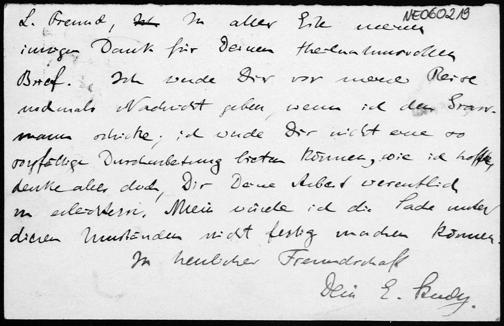 NE060219
L. Freund, In aller Eile meinen
innigen Dank für Deinen theilnahmsvollen
Brief. Ich werde Dir vor meiner Reise
nochmals Nachricht geben, wenn ich den Grass-
mann schicke; ich werde Dir nicht eine so
sorgfältige Durcharbeitung bieten können, wie ich hoffte,
denke aber doch, Dir Deine Arbeit wesentlich
zu erleichtern. Allein würde ich die Sache unter
diesen Umständen nicht fertig machen können.
In herzlicher Freundschaft
Dein E. Study.